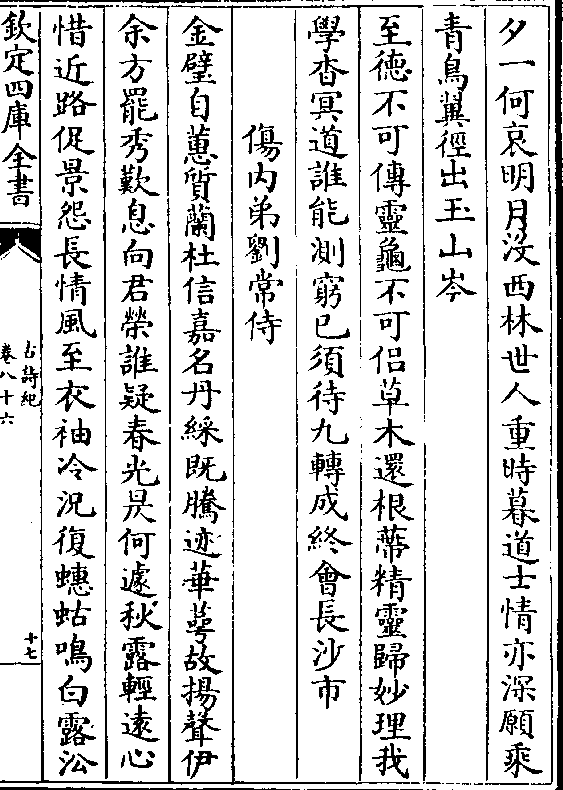 夕一何哀明月沒西林世人重時暮道士情亦深願乘
青鳥翼徑出玉山岑
至徳不可傳靈龜不可侣草木還根蔕精靈歸妙理我
學杳冥道誰能測窮已須待九轉成終會長沙市
傷内弟劉常侍
金璧自蕙質蘭杜信嘉名丹綵既騰迹華萼故揚聲伊
余方罷秀歎息向君榮誰疑春光昃何遽秋露輕遠心
惜近路促景怨長情風至衣袖冷況復蟪蛄鳴白露沿
欽定四庫全書
古詩紀
卷八十六
十七